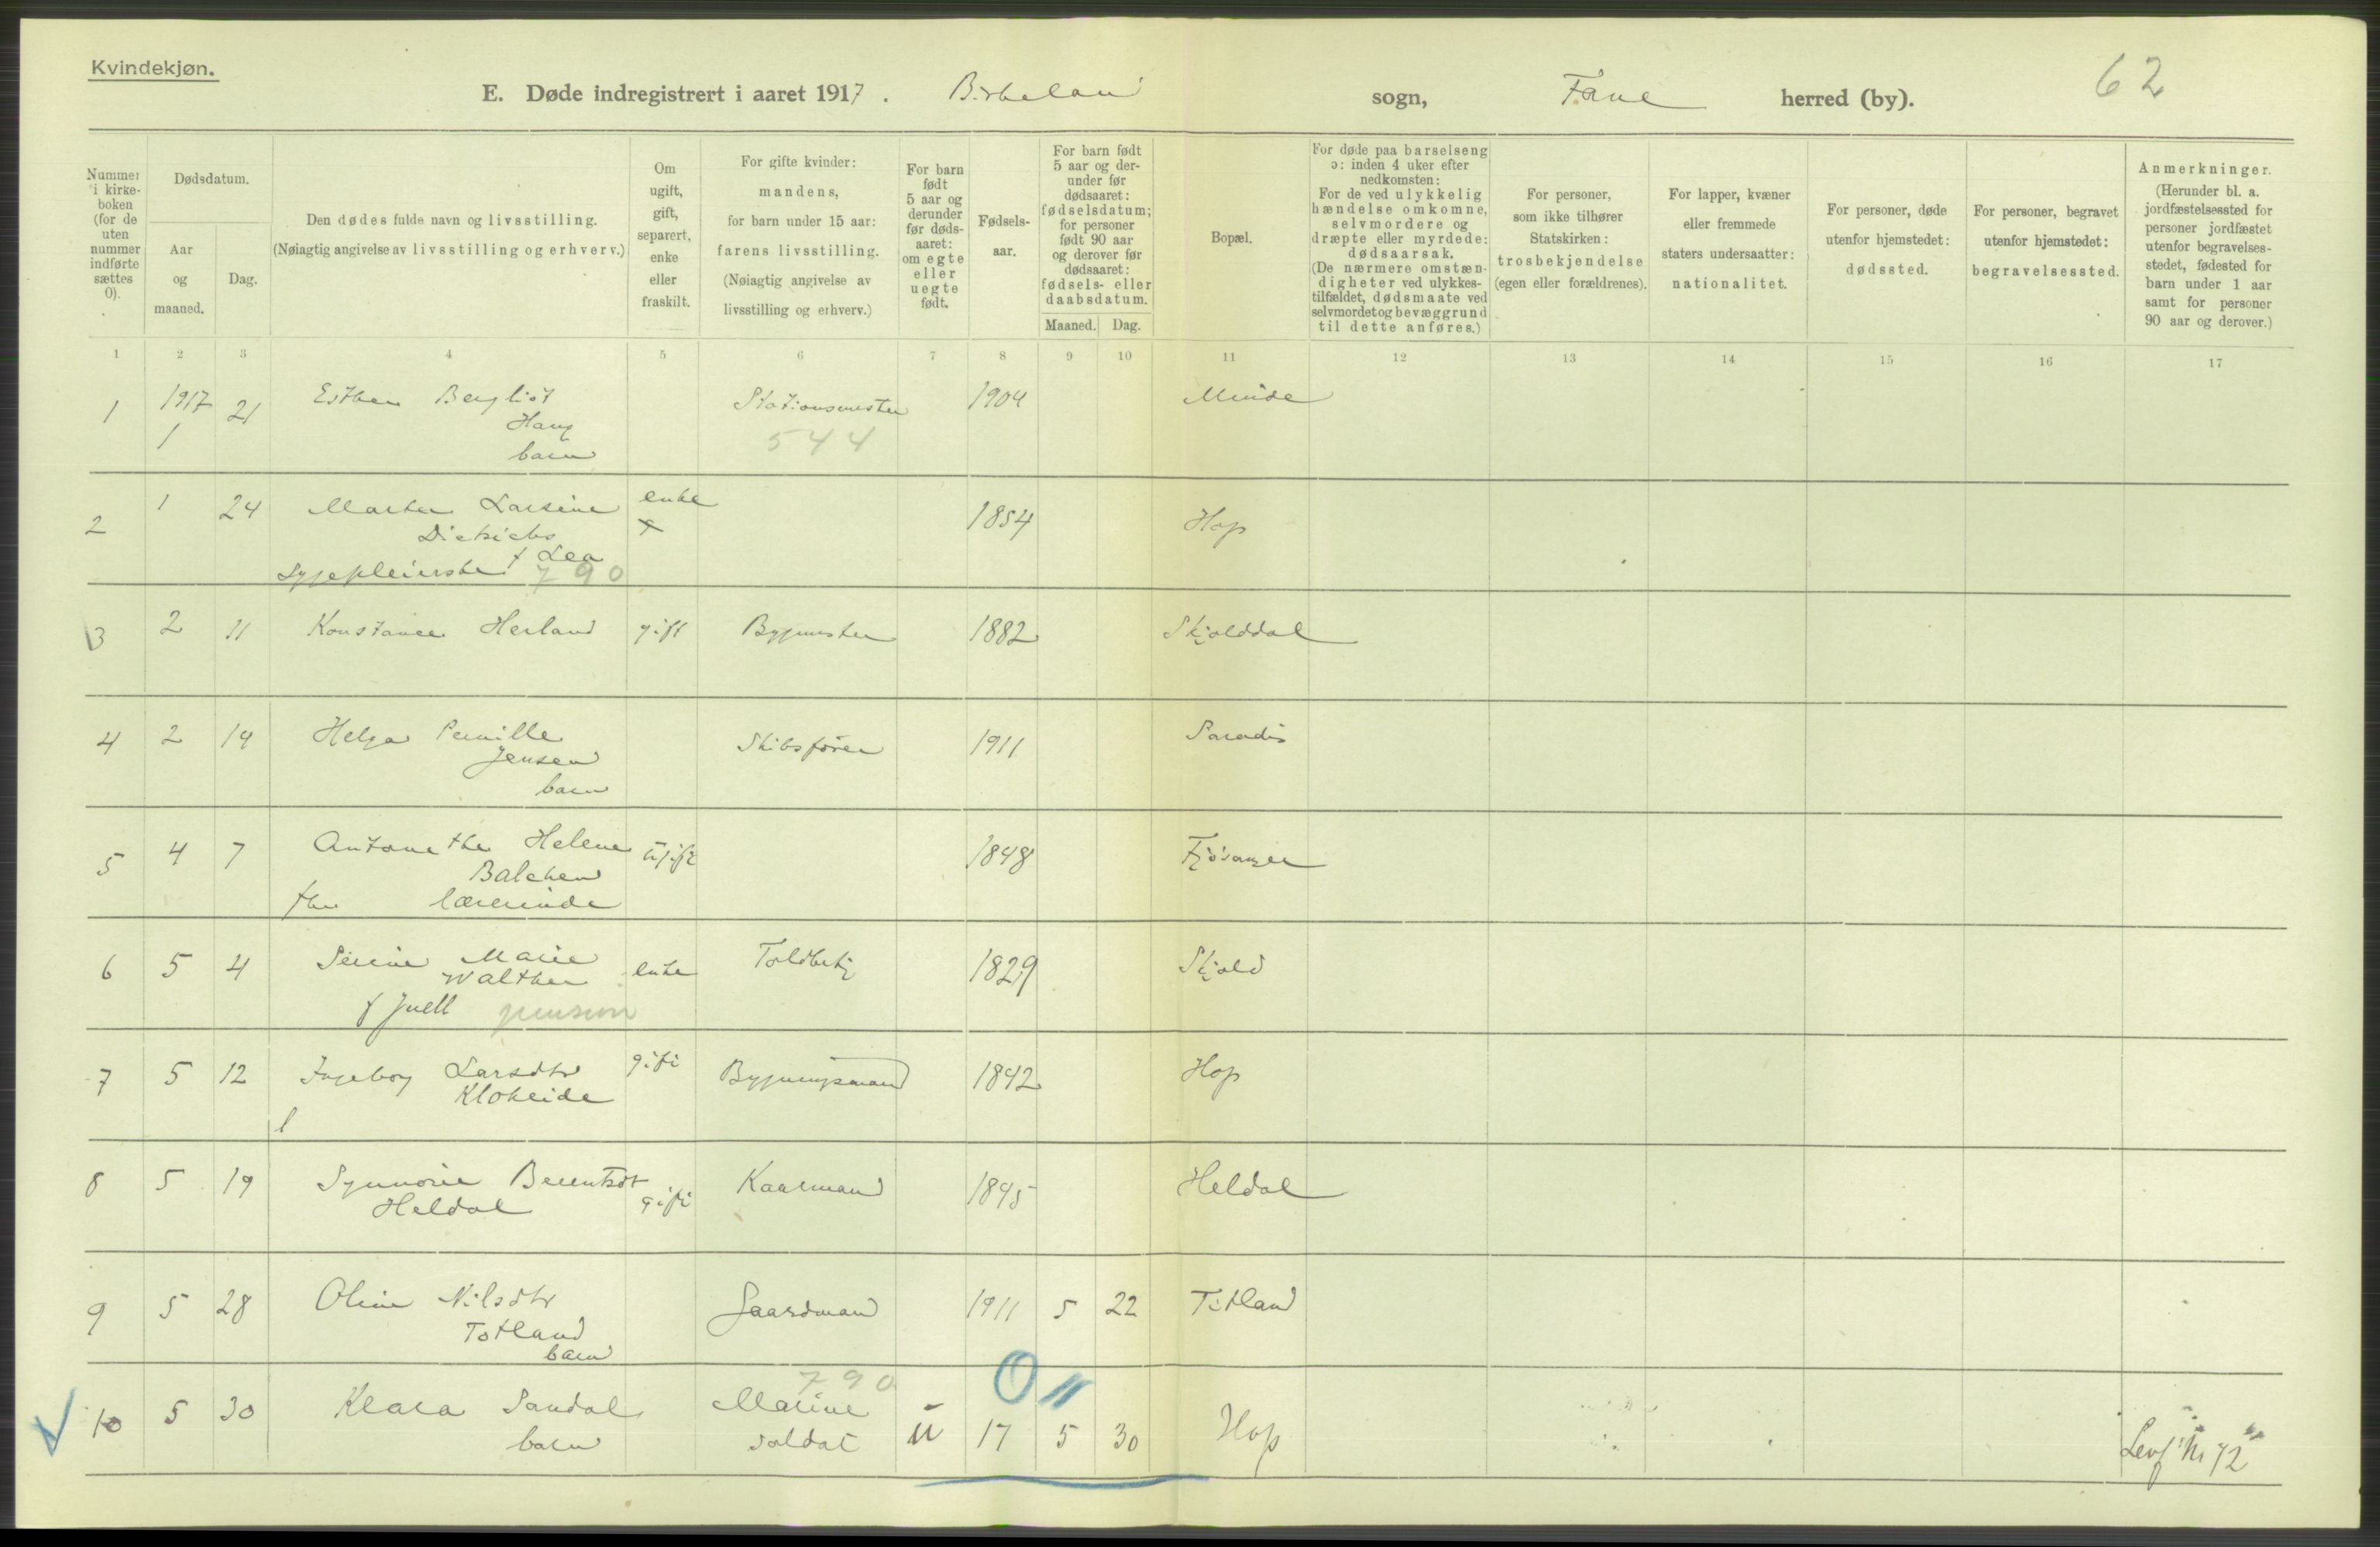 Kvindekjøn.
62
E. Døde indregistrert i aaret 1917. Birkeland sogn, Fane herred (by).
Nummer i kirkeboken (for de uten nummer indførte sættes 0).
Dødsdatum.
Aar og maaned.
Dag.
Den dødes fulde navn og livsstilling.
(Nøiagtig angivelse av livsstilling og erhverv.)
Om ugift, gift, separert, enke eller fraskilt.
For gifte kvinder: mandens, for barn under 15 aar: farens livsstilling.
(Nøiagtig angivelse av livsstilling og erhverv.)
For barn født 5 aar og derunder før dødsaaret: om egte eller uegte født.
Fødselsaar.
For barn født 5 aar og derunder før dødsaaret: fødselsdatum; for personer født 90 aar og derover før dødsaaret: fødsels- eller daabsdatum.
Maaned. Dag.
Bopæl.
For døde paa barselseng ɔ: inden 4 uker efter nedkomsten:
For de ved ulykkelig hændelse omkomne, selvmordere og dræpte eller myrdede: dødsaarsak.
(De nærmere omstændigheter ved ulykkestilfældet, dødsmaate ved selvmordet og bevæggrund til dette anføres.)
For personer, som ikke tilhører Statskirken: trosbekjendelse (egen eller forældrenes).
For lapper, kvæner eller fremmede staters undersaatter: nationalitet.
For personer, døde utenfor hjemstedet: dødssted.
For personer, begravet utenfor hjemstedet: begravelsessted.
Anmerkninger.
(Herunder bl. a. jordfæstelsessted for personer jordfæstet utenfor begravelsesstedet, fødested for barn under 1 aar samt for personer 90 aar og derover.)
1 2 3 4 5 6 7 8 9 10 11 12 13 14 15 16 17
1 1917 1 21 Esther Bergliot Stationsmester 1904 Minde
Haug 544
barn
2 1 24 Marta Larsine enke 1854 Hop
Dietrichs x
Sygepleierske f Lea 790
3 2 11 Konstance Herland gift Bygmester 1882 Skjolddal
4 2 19 Helga Pernille Skibsfører 1911 Paradis
Jensen
barn
5 4 7 Antonethe Helene ugift 1848 Fjøsanger
Balchen
fhv lærerinde
6 5 4 Serine Marie enke Toldbetj 1829 Skjold
Walther
f Juell pension
7 5 12 Ingeborg Larsdtr gift Bygningsmand 1842 Hop
Klokeide
8 5 19 Synnøve Berentsdt gift Kaarmand 1845 Heldal
Heldal
9 5 28 Oline Nilsdtr Gaardmand 1911 5 22 Totland
Totland
barn
790 0 11
10 5 30 Klara Sandal Marine u 17 5 30 Hop
barn soldat Levf Nr 72